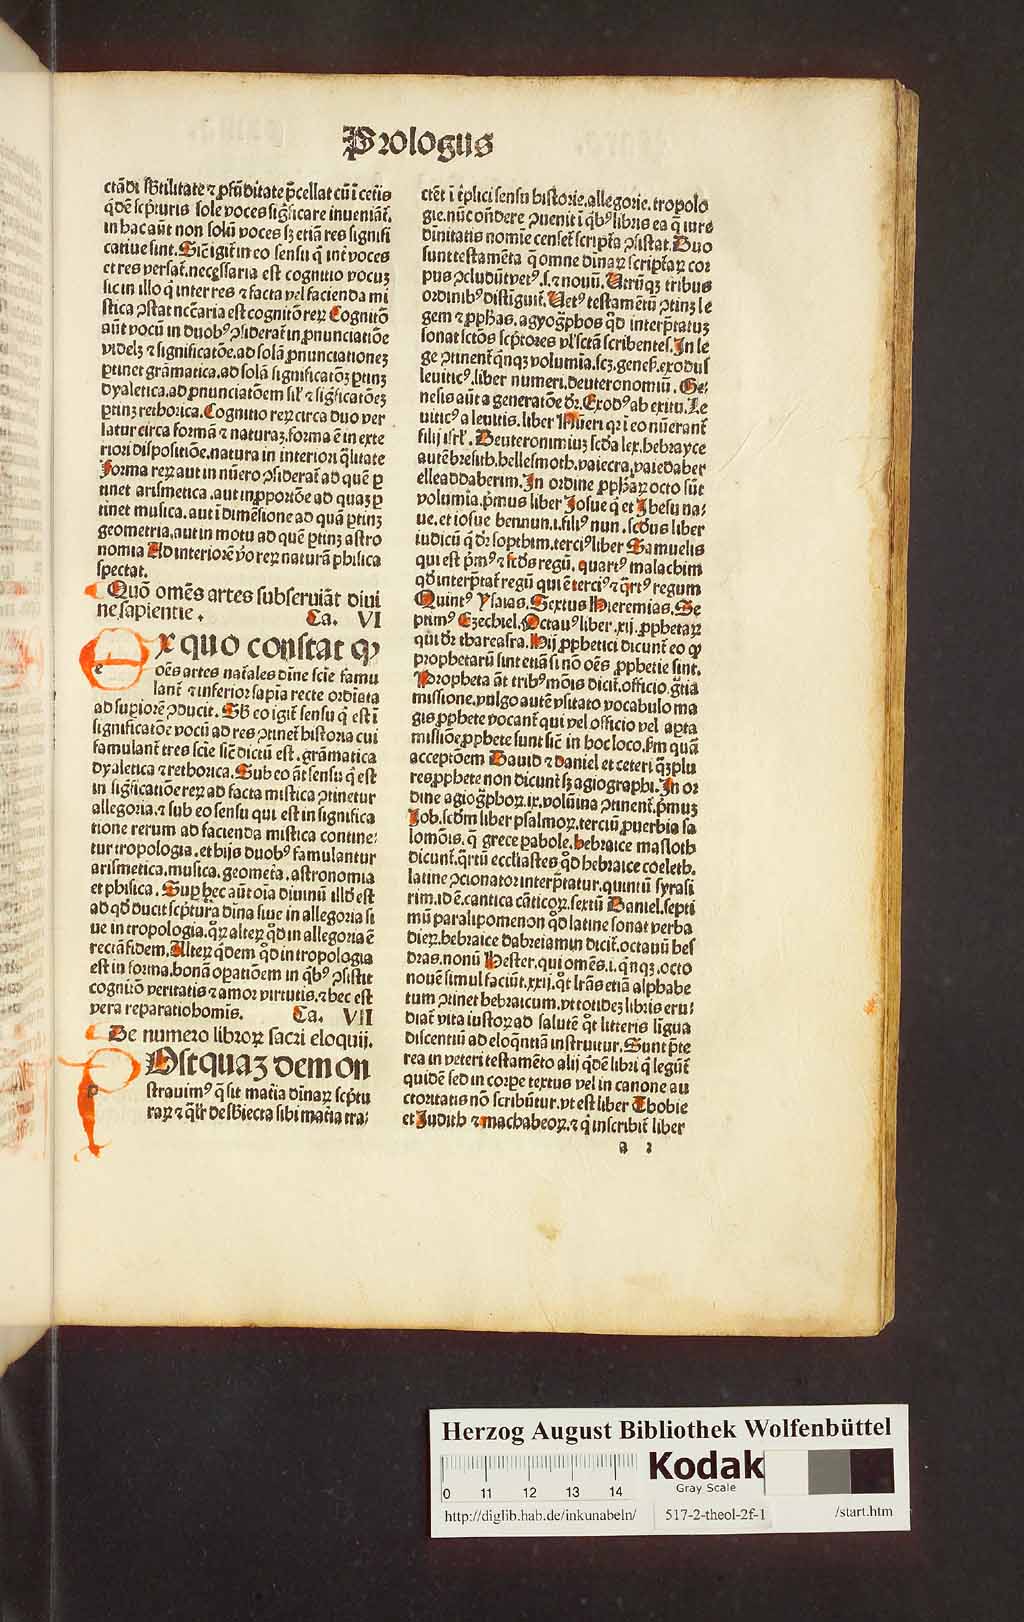 Prologus
ctãdi sb̃tilitate ⁊ ꝓfũditate p̃cellat cũ ĩ cet̃is
q̃dẽ sc̃pturis sole voces sig̃ficare inueniãt̃.
in hac aũt non solũ voces sʒ etiã res signifi
catiue sint. Sic̃ igit̃ in eo sensu q̃ int̃ voces
et res versat̃. necessaria est cognitio vocuʒ
sic in illo q̃ inter res ⁊ facta vel facienda mi
stica ꝯstat ncc̃aria est cognitõ reꝝ Cognitõ
aũt vocũ in duobꝰ ꝯsiderat̃ in ꝓnunciatiõe
videlʒ ⁊ significatõe. ad solã ꝓnunctationeʒ
ꝑtinet grãmatica. ad solã significatõʒ ꝑtinʒ
dyaletica. ad ꝓnunciatõem sil̃ ⁊ sig̃ficatõeʒ
ꝑtinʒ rethorica. Cognitio reꝝ circa duo ver
satur circa formã ⁊ naturaʒ. forma ẽ in exte
riori dispositiõe. natura in interiori q̃litate
Forma reꝝ aut in nũero ꝯsiderat̃ ad quẽ ꝑ
tinet arismetica. aut in ꝓportiõe ad quaʒ ꝑ
tinet musica. aut ĩ dimẽsione ad quã ꝑtinʒ
geometria. aut in motu ad quẽ ꝑtinʒ astro
nomia Ad interiorẽ ṽo reꝝ naturã phisica
spectat.
Quõ omẽs artes subseruiãt diui
ne sapientie. Ca. VI
e
Ex quo constat ꝙ
oẽs artes nat̃ales diñe sciẽ famu
lant̃ ⁊ inferior sapĩa recte ordĩata
ad supiorẽ ꝯducit. Sb̃ eo igit̃ sensu q̃ est ĩ
significatõe vocũ ad res ꝯtinet̃ historia cui
famulant̃ tres sciẽ sic̃ dictũ est. grãmatica
dyaletica ⁊ rethorica. Sub eo añt sensu q̃ est
in sig̃ficatiõe reꝝ ad facta mistica ꝯtinetur
allegoria. ⁊ sub eo sensu qui est in significa
tione rerum ad facienda mistica contine:
tur tropologia. et hijs duobꝰ famulantur
arismetica. musica. geometa. astronomia
et phisica. Suꝑ hec aũt oĩa diuinũ ill̃d est
ad qd̃ ducit sc̃ptura dĩna siue in allegoria si
ue in tropologia. q̃ꝝ alteꝝ qd̃ in allegoria ẽ
rectã fidem. Alteꝝ q̃dem qd̃ in tropologia
est in forma. bonã oꝑatiõem in qb̃ꝰ ꝯsistit
cognitio veritatis ⁊ amor virtutis. ⁊ hec est
vera reparatio homĩs. Ca. VII
De numero libroꝝ sacri eloquij.
p
POstquaʒ demon
strauimꝰ q̃ sit mat̃ia dĩnaꝝ sc̃ptu
raꝝ ⁊ q̃lr̃ de sb̃iecta sibi mat̃ia tra:
ctẽt ĩ t̃plici sensu historie. allegorie. tropolo
gie. nũc oñdere ꝯuenit ĩ qb̃ꝰ libris ea q̃ iure
diñitatis nomĩe censet̃ script̃a ꝯsistat. Duo
sunt testamẽta q̃ omne dĩnaꝝ script̃aꝝ cor
pus ꝯcludũt vetꝰ .s. ⁊ nouũ. Utrũqʒ tribus
ordinibꝰ distiguit̃. Uetꝰ testamẽtũ ꝯtinʒ le
gem ⁊ ꝓph̃as. agyog̃ph̃os qd̃ interp̃tatuʒ
sonat sctõs sc̃ptores vl̃ sctã scribentes. In le
ge ꝯtinent̃ q̃nqʒ volumĩa. scʒ. genes̃. exodus
leuiticꝰ. liber numeri. deuteronomiũ. Ge:
nesis aũt a generatõe dr̃. Exodꝰ ab exitu. Le
uiticꝰ a leuitis. liber Nũeri qr̃ ĩ eo nũerant̃
filij isrl̃. Deuteronimiuʒ sc̃da lex. hebrayce
autẽ bresith. hellesmoth. vaiecra. vaiedaber
elleaddaberim. In ordine ꝓph̃aꝝ octo sũt
volumĩa. p̃mus liber Josue q̃ et Jhesu na:
ue. et iosue bennun .i. filiꝰ nun. sc̃dus liber
iudicũ q̃ dr̃ sopthim. terciꝰ liber Samuelis
qui est p̃mꝰ ⁊ sc̃ds regũ. quartꝰ malachim
qd̃ interp̃tat̃ regũ qui ẽ terciꝰ ⁊ q̃rtꝰ regum
Quintꝰ Ysaias. Sextus Hieremias. Se
ptimꝰ Ezechiel. Octauꝰ liber .xij. ꝓphetaꝝ
qui dr̃ thareasra. Hij ꝓphetici dicunt̃ eo ꝙ
prophetarũ sint etiã si nõ oẽs ꝓphetie sint.
Propheta añt tribꝰ mõis dicit̃. officio. gr̃tia
missione. vulgo autẽ vsitato vocabulo ma
gis ꝓphete vocant̃ qui vel officio vel apta
missiõe ꝓphete sunt sic̃ in hoc loco. sm̃ quã
acceptõem Dauid ⁊ Daniel et ceteri q̃ʒ plu
res ꝓphete non dicunt̃ sʒ agiographi. In or
dine agiog̃phoꝝ .ix. volũina ꝯtinent̃. p̃muʒ
Job. scd̃m liber psalmoꝝ. terciũ ꝓuerbia sa
lomõis. q̃ grece ꝑabole. hebraice masloth
dicunt̃. q̃rtũ eccl̃iastes qd̃ hebraice coeleth.
latine ꝯcionator interp̃tatur. quintũ syrasi
rim. id ẽ. cantica cãticoꝝ. sextũ Daniel. septi
mũ paralipomenon qd̃ latine sonat verba
dieꝝ. hebraice dabreiamin dicit̃. octauũ hes
dras. nonũ Hester. qui omẽs .i. q̃nqʒ. octo
nouẽ simul faciũt .xxij. qt̃ lr̃as etiã alphabe
tum ꝯtinet hebraicum. vt totideʒ libris eru:
diat̃ vita iustoꝝ ad salutẽ qt̃ litteris lĩgua
discentiũ ad eloq̃ntiã instruitur. Sunt p̃te
rea in veteri testamẽto alij q̃dẽ libri q̃ legũt̃
quidẽ sed in corꝑe textus vel in canone au
ctoritatis nõ scribũtur. vt est liber Thobie
et Judith ⁊ machabeoꝝ. ⁊ q̃ inscribit̃ liber
a 2
Herzog August Bibliothek Wolfenbüttel
0 11 12 13 14
Kodak
Gray Scale
http://diglib.hab.de/inkunabeln/ 517-2-theol-2f-1 /start.htm